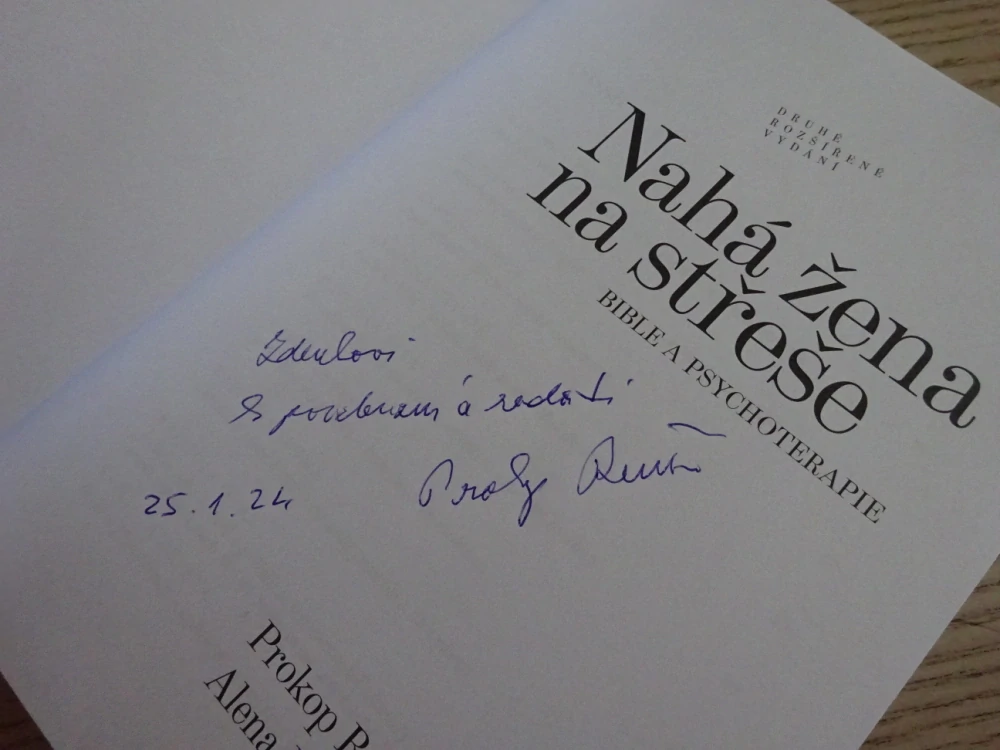 DRUHÉ
ROZŠÍŘENÉ
VYDÁNÍ
Nahá žena
na střeše
BIBLE A PSYCHOTERAPIE
Zdeňkovi
S
25.1.24 Prokop
Prokop R
Alena